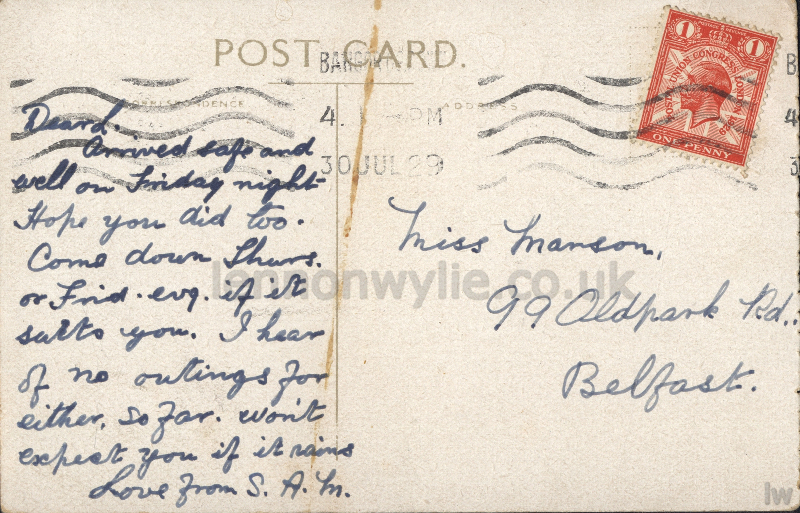 POST CARD.
CORRESPONDENCE
ADDRESS
4. PM
30 JUL 29
1 1
POSTAL UNION CONGRESS LONDON 1929
ONE PENNY
Dear d.
Arrived safe and
well on Friday night
Hope you did too.
Come down Thurs.
or Frid. evg. if it
suits you. I hear
of no outings for
either, so far. won't
expect you if it rains
Love from S. A. M.
Miss Manson,
99 Oldpark Rd.,
Belfast.
lennonwylie.co.uk
lw